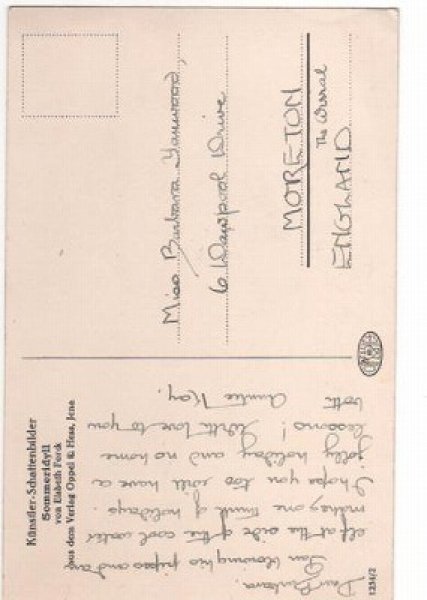 Künstler-Schattenbilder
Sommeridyll
von Elsbeth Forck
aus dem Verlag Oppel & Hess, Jena
Dear Barbara.
Pan blowing his pipes and an
elf at the side of the cool water
makes one think of holidays.
I hope you too will have a
jolly holiday and no home
lessons! With love to you
both Auntie Kay.
Miss Barbara
6 Drive
MORETON
The Wirral
ENGLAND
1234/2